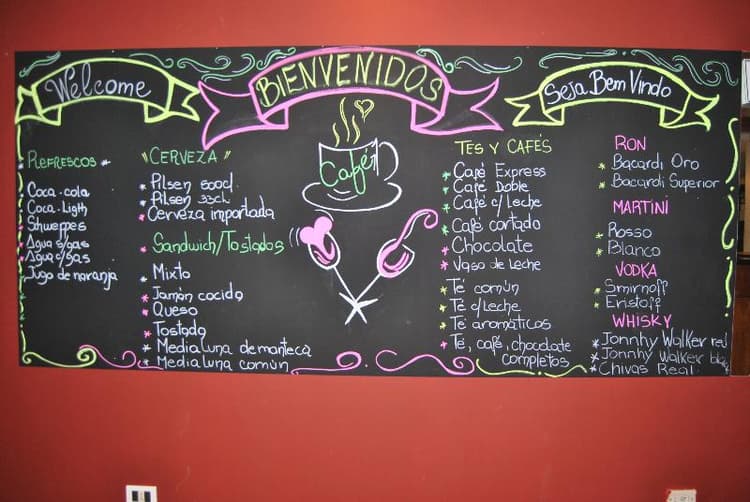 Welcome
BIENVENIDOS
Seja Bem Vindo
REFRESCOS
Coca-cola
Coca-Ligth
Shweppes
Agua s/gas
Agua c/gas
Jugo de naranja
"CERVEZA"
Pilsen 500cl
Pilsen 33cl
Cerveza importada
Sandwich/Tostados
Mixto
Jamón cocido
Queso
Tostado
Media luna de manteca
Media luna común
Café
TES Y CAFÉS
Café Express
Café Doble
Café c/Leche
Café cortado
Chocolate
Vaso de Leche
Té común
Té c/Leche
Té aromáticos
Té, café, chocolate
completos
RON
Bacardi Oro
Bacardi Superior
MARTINI
Rosso
Blanco
VODKA
Smirnoff
Eristoff
WHISKY
Jonnhy Walker red
Jonnhy Walker
Chivas Real